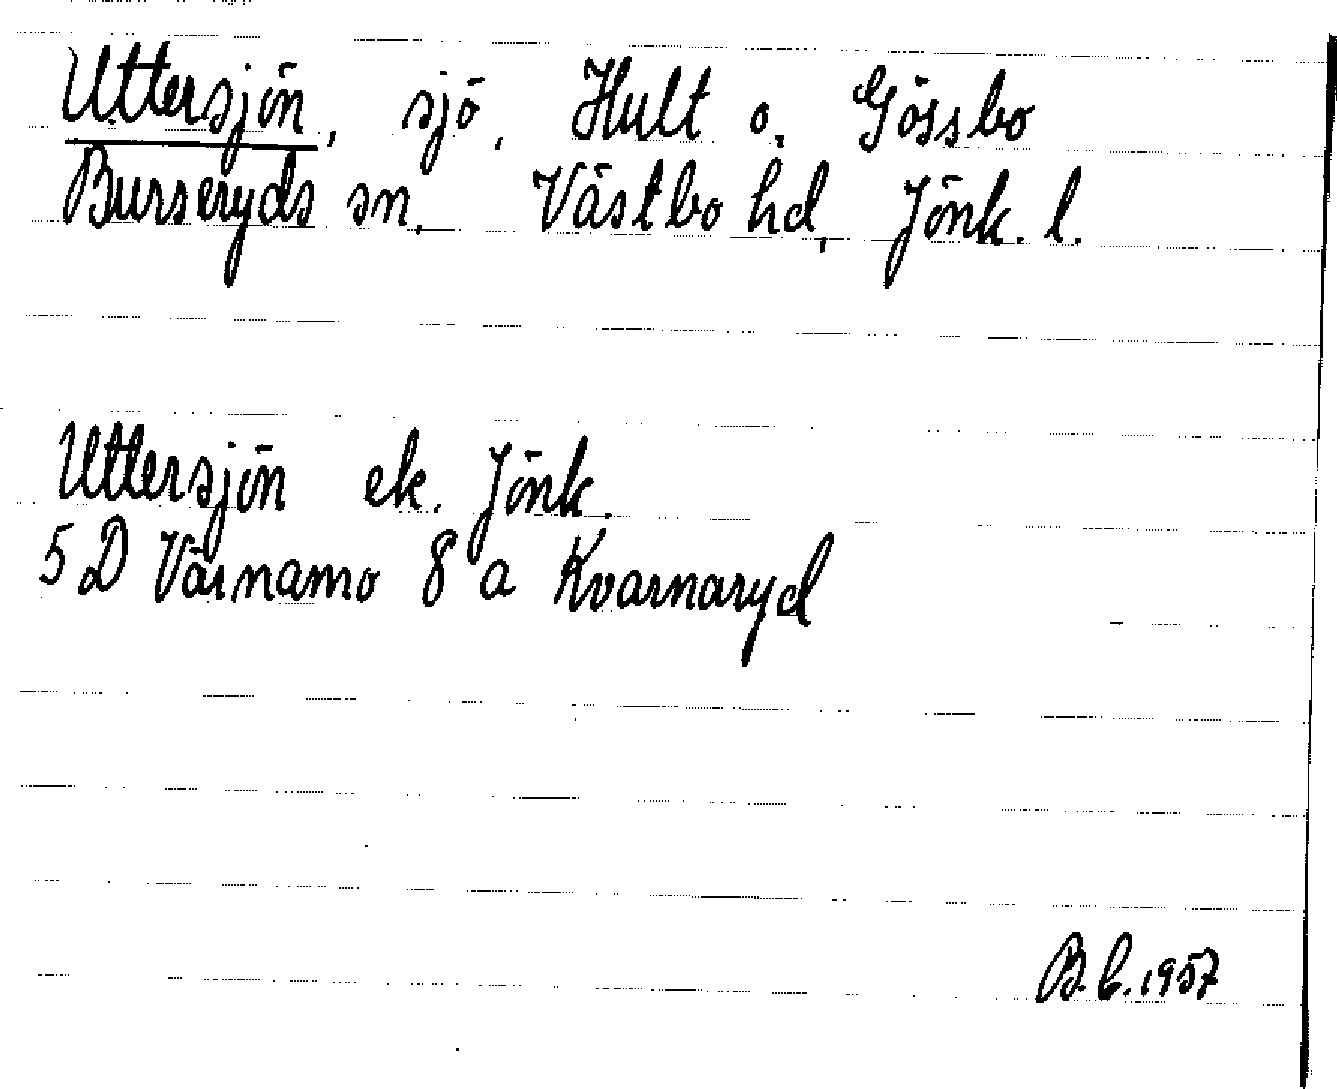 Uttersjön, sjö, Hult o. Gössbo
Burseryds sn, Västbo hd, Jönk. l.
Uttersjön ek. Jönk.
5 D Värnamo 8 a Kvarnaryd
B.b. 1957